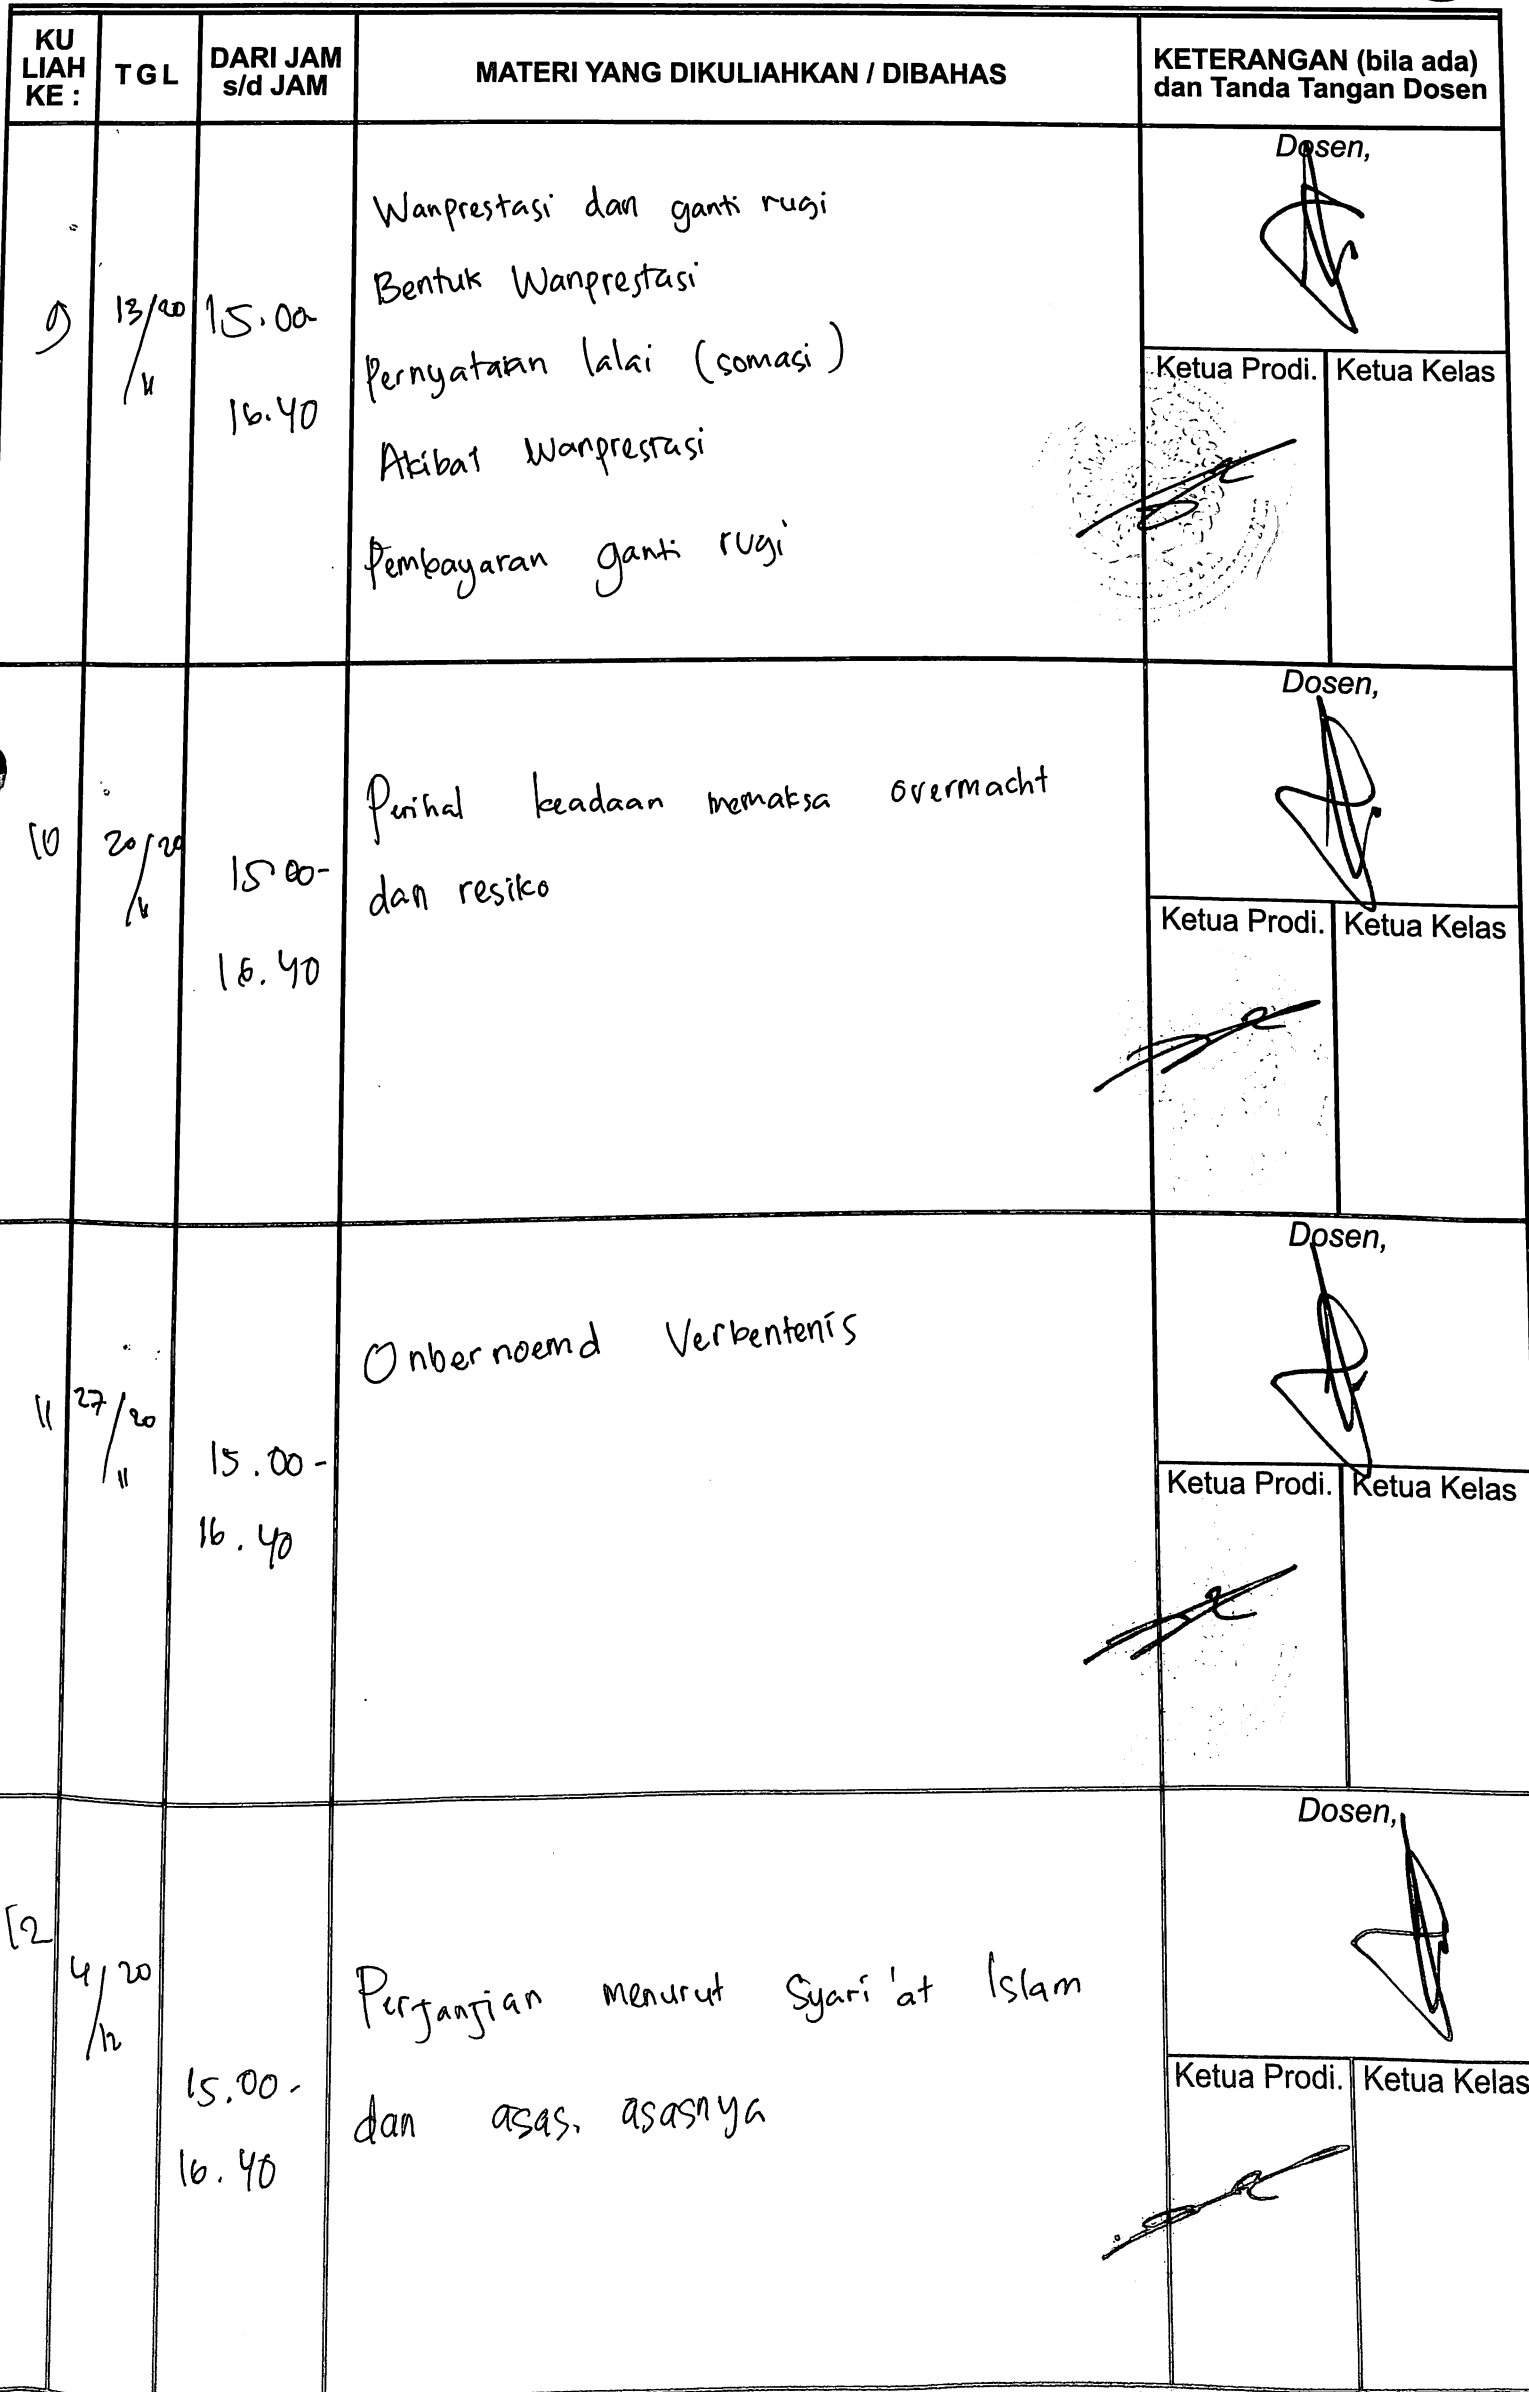 KU LIAH KE :
TGL
DARI JAM s/d JAM
MATERI YANG DIKULIAHKAN / DIBAHAS
KETERANGAN (bila ada) dan Tanda Tangan Dosen
9
13/20
/11
15.00
16.40
Wanprestasi dan ganti rugi
Bentuk Wanprestasi
Pernyataan lalai (somasi)
Akibat Wanprestasi
Pembayaran ganti rugi
Dosen,
Ketua Prodi.
Ketua Kelas
10
20/20
/11
15 00-
16.40
Perihal keadaan memaksa overmacht
dan resiko
Dosen,
Ketua Prodi.
Ketua Kelas
11
27/20
/11
15.00-
16.40
Onbernoemd Verbentenis
Dosen,
Ketua Prodi.
Ketua Kelas
12
4/20
/12
15.00-
16.40
Perjanjian menurut Syari'at Islam
dan asas. asasnya
Dosen,
Ketua Prodi.
Ketua Kelas